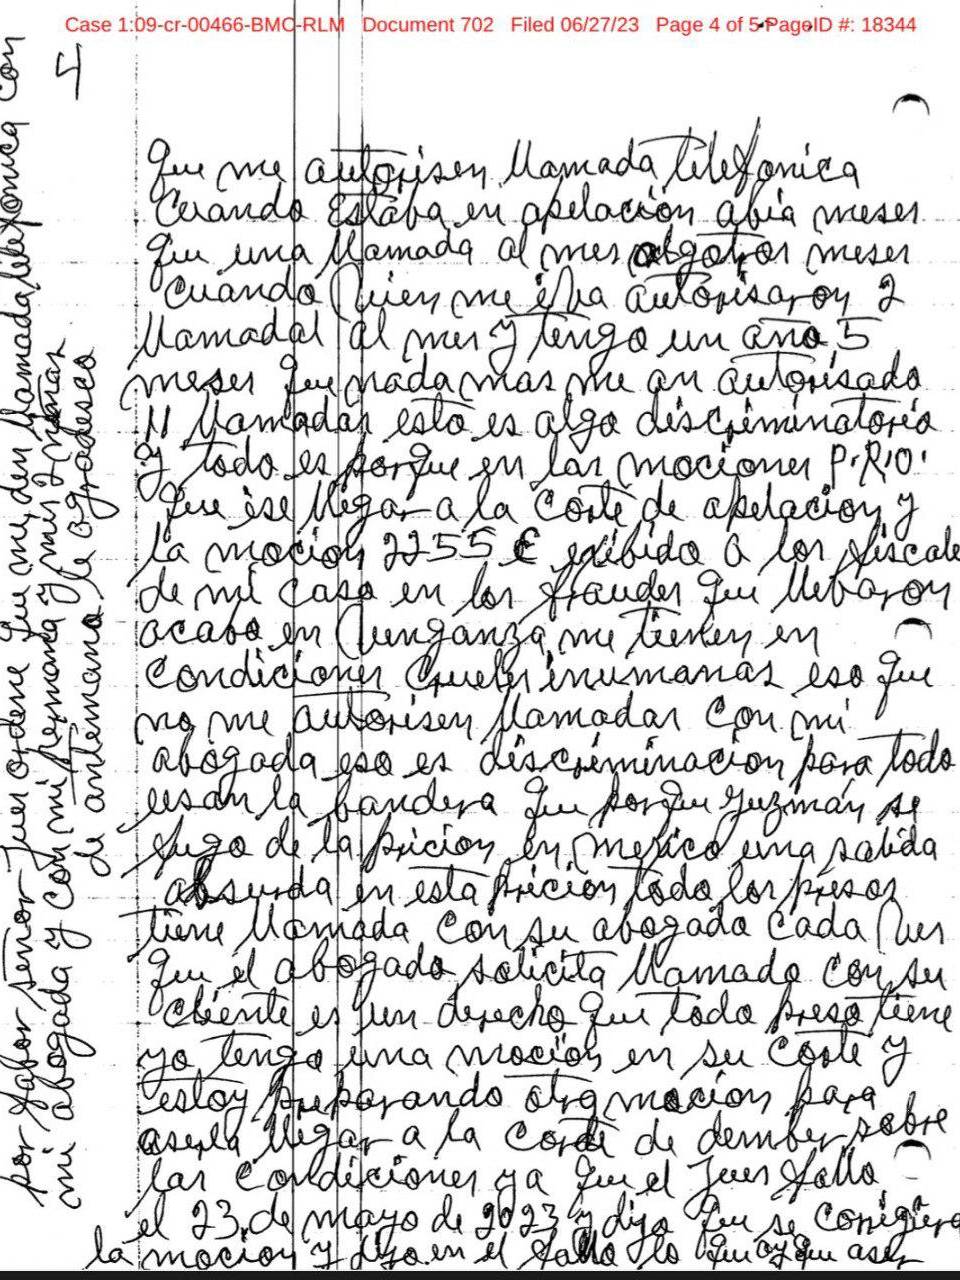 Case 1:09-cr-00466-BMC-RLM Document 702 Filed 06/27/23 Page 4 of 5 PageID #: 18344
4
que me autorisen llamada telefonica
Cuando Estaba en apelacion abia meses
que una llamada al mes otros meses
Cuando vien me iva autorisaron 2
llamadas al mes y tengo un ano 5
meses que nada mas me an autorisado
11 llamadas esto es algo discriminatorio
y todo es porque en las mociones P.R.O.
que ise llegar a la Corte de apelacion y
la mocion 2255 E exibido a los fiscale
de mi caso en los fraudes que llebaron
acabo en venganza me tienen en
condiciones Crueles inumanas eso que
no me autorisen llamadas con mi
abogada eso es discriminacion para todo
usan la bandera que porque guzmán se
fugo de la pricion en mexico una salida
absurda en esta pricion todo los presos
tiene llamada con su abogado cada ves
que el abogado solicita llamada con su
cliente es un derecho que todo preso tiene
yo tengo una mocion en su Corte y
estoy preparando otra mocion para
aserla llegar a la Corte de dember sobre
las condiciones ya que el Jues fallo
el 23 de mayo de 2023 y dijo que se corigiera
la mocion y dijo en el fallo lo que ay que aser
por fabor señor Jues ordene que me den llamada telefonica con
mi abogada y con mi hermana y mis 2 niñas
de antemano le agradesco